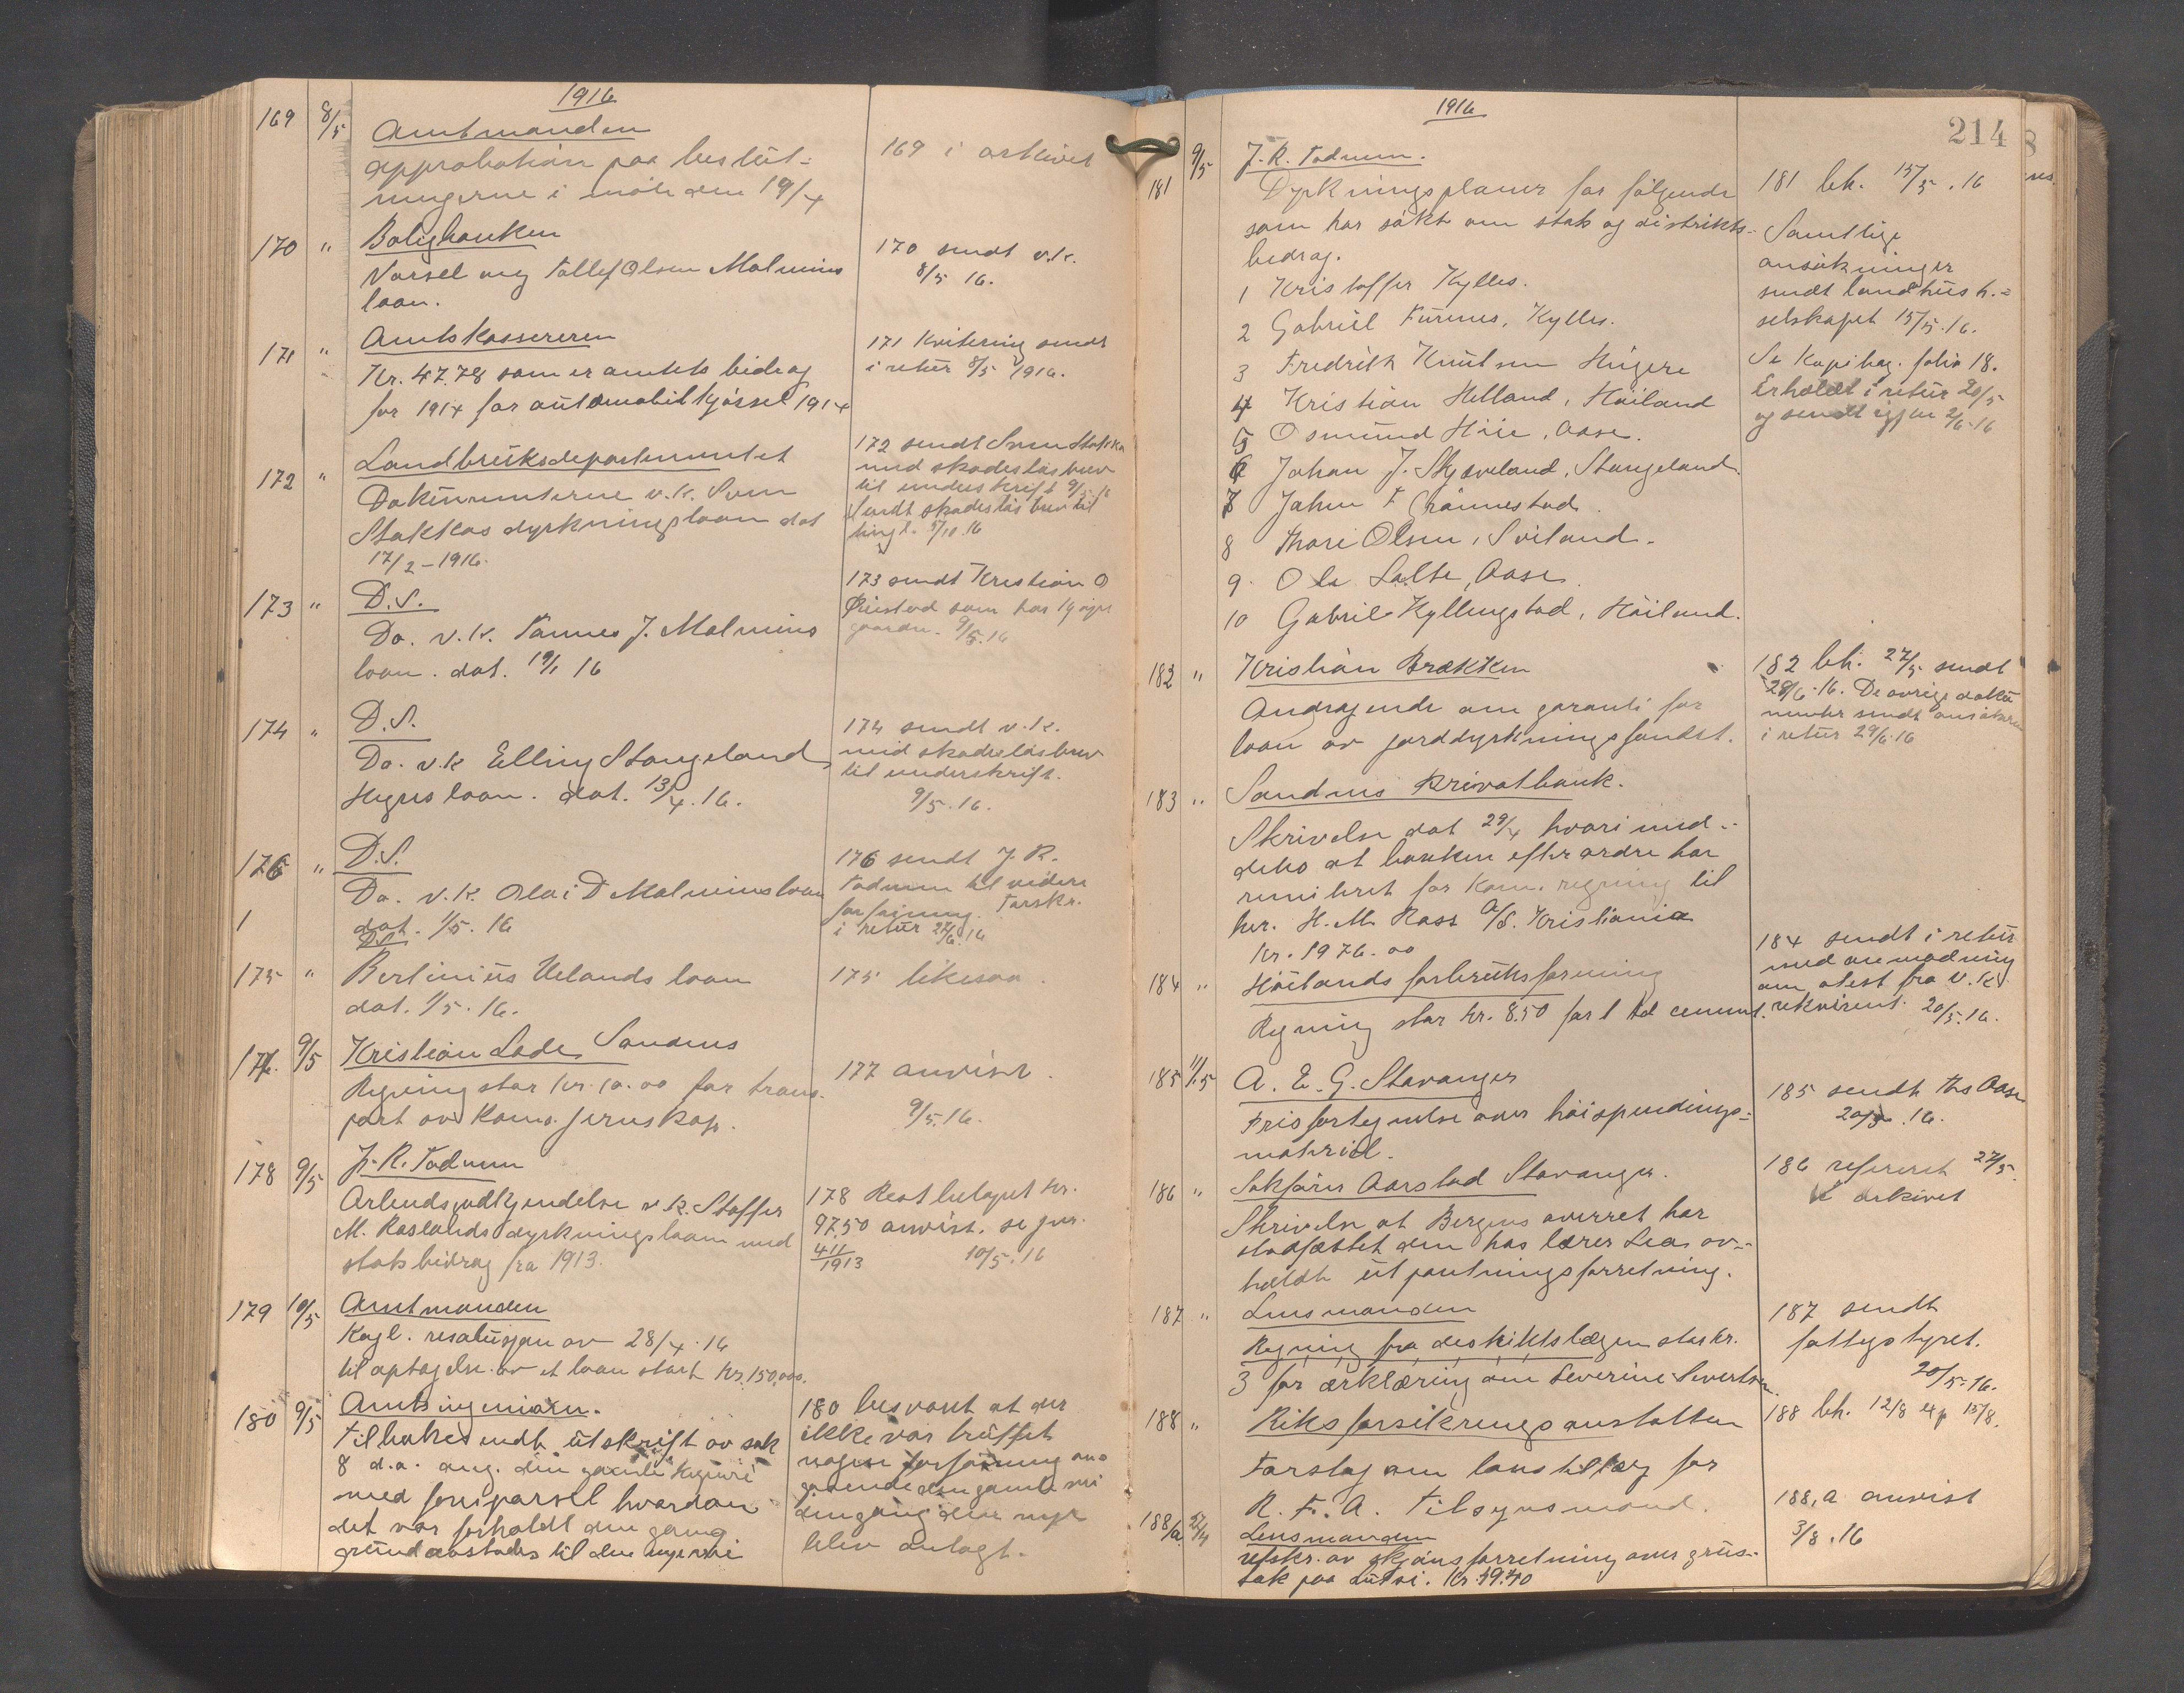 1916
169 8/5 Amtmanden
approbation paa beslut-
ningerne i møte den 19/4
169 i arkivet
170 " Boligbanken
Varsel ang Tollef Olsen Malmins
laan.
170 sendt v.k.
8/5 16.
171 " Amtskassereren
Kr. 47.78 som er amtets bidrag
for 1914 for automobilkjørsel 1914
171 Kvitering sendt
i retur 8/5 1916.
172 " Landbruksdepartementet
Dokumenterne v.k. Sven
Stokkas dyrkningslaan dat
17/2-1916.
172 sendt Sven Stokka
med skadesløsbrev
til underskrift 9/5.16
Sendt skadesløsbrev til
tingl. 5/10.16
173 " D.S.
Do. v.k. Tønnes J. Malmins
laan. dat. 19/1 16
173 sendt Kristian O
som har kjøpt
gaarden. 9/5.16
174 " D.S.
Do. v.k Elling Stangeland
laan. dat. 13/4.16.
174 sendt v.k.
med skadesløsbrev
til underskrift.
9/5.16.
176 " D.S.
Do. v.k. Olai D Malmins laan
dat. 1/5.16
176 sendt J. R.
Todnem til videre
forføining. Forskr.
i retur 27/6.16
1
D.S.
175 " Bertinius Uelands laan
dat. 1/5.16.
175 likesaa.
177. 9/5 Kristian Lode Sandnes
Regning stor kr. 10.00 for trans-
port av kom. jernskap.
177 anvist.
9/5.16.
178 9/5 J. R. Todnem
Arbeidsgodkjendelse v.k. Stoffer
M. Raslands dyrkningslaan med
statsbidrag fra 1913.
178 Restbeløpet kr.
97.50 anvist. se jur.
411/1913 10/5.16
179 10/5 Amtmanden
Kogl. resolusjon av 28/4.16
til optagelse av et laan stort kr. 150,000.
180 9/5 Amtsingeniøren.
Tilbakesendt utskrift av sak
8 d.a. ang. den gamle veivei
med jernparsel hvordan
det var forholdt den gang
grund avstodes til den nye vei
180 besvart at der
ikke var truffet
nogen forføining an-
gaaende den gamle vei
dengang den nye
blev anlagt.
1916
214
181 9/5 J. R. Todnem.
Dyrkningsplaner for følgende
som har søkt om stats og distrikts-
bidrag.
1 Kristoffer Kylles.
2 Gabriel Furenes, Kylles.
3 Fredrik Knutsen
4 Kristian Helland, Höiland
5 Osmund Höie, Aase.
6 Johan J. Skjæveland, Stangeland.
7 Johan F Grønnestad.
8 Thore Olsen, Sviland.
9. Ole Salte, Aase.
10 Gabriel Kyllingstad, Höiland.
181 bh. 15/5.16
Samtlige
ansökninger
sendt landhush.-
selskapet 15/5.16.
Se Kopibog. folio 18.
Erholdt i retur 20/5
og sendt igjen 2/6.16
182 " Kristian Brækken
Andragende om garanti for
laan av jorddyrkningsfondet.
182 bh. 27/5 sendt
28/6.16. De øvrige doku
menter sendt ansökeren
i retur 29/6.16
183 " Sandnes Privatbank.
Skrivelse dat 29/4 hvori med-
deles at banken efter ordre har
remitert for kom. regning til
hr. H. M. Rass A/S. Kristiania
Kr. 1976.00
184 " Höilands forbruksforening
Regning stor kr. 8.50 for 1 td cement.
184 sendt i retur
med anmodning
om atest fra v.k.
rekvirent. 20/5.16.
185 11/5 A. E. G. Stavanger
Prisfortegnelse over höispendings-
materiel.
185 sendt Ths Aase
20/5.16.
186 " Sakförer Aarstad Stavanger.
Skrivelse at Bergens overret har
stadfæstet den hos lærer Lea av-
holdte utpantningsforretning.
186 refereret 27/5
i arkivet
187 " Lensmanden
Regning fra distriktslægen stor kr.
3 for erklæring om Severine Sivertsen.
187 sendt
fattigstyret.
20/5.16.
188 " Riksforsikringsanstalten
Forslag om lönstillæg for
R. F. A. tilsynsmand.
188 bh. 12/8 exp 15/8.
188/a 27/4 Lensmanden
utskr. av skjönsforretning over grus-
tak paa Lutsi. Kr. 49.40
188,a anvist
3/8.16